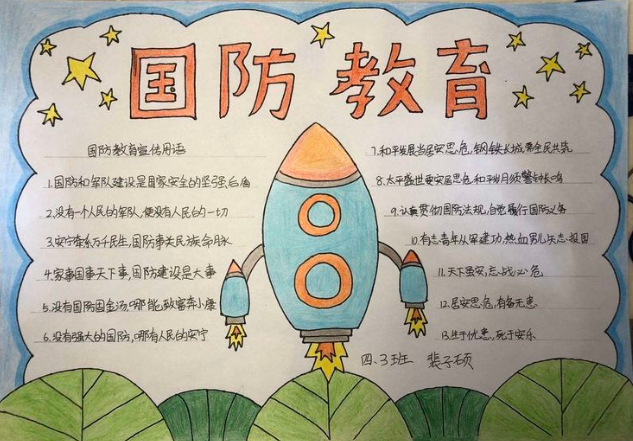 国防教育
国防教育宣传用语
1.国防和军队建设是国家安全的坚强后盾
2.没有一个人民的军队,便没有人民的一切
3.安宁牵系万千民生,国防事关民族命脉
4.家事国事天下事,国防建设是大事
5.没有国防固金汤,哪能致富奔小康
6.没有强大的国防,哪有人民的安宁
7.和平发展当居安思危,钢铁长城需全民共筑
8.太平盛世要安居思危,和平岁月须警钟长鸣
9.认真贯彻国防法规,自觉履行国防义务
10.有志青年从军建功,热血男儿矢志报国
11.天下虽安,忘战必危
12.居安思危,有备无患
13.生于忧患,死于安乐
四.3班 裴子硕